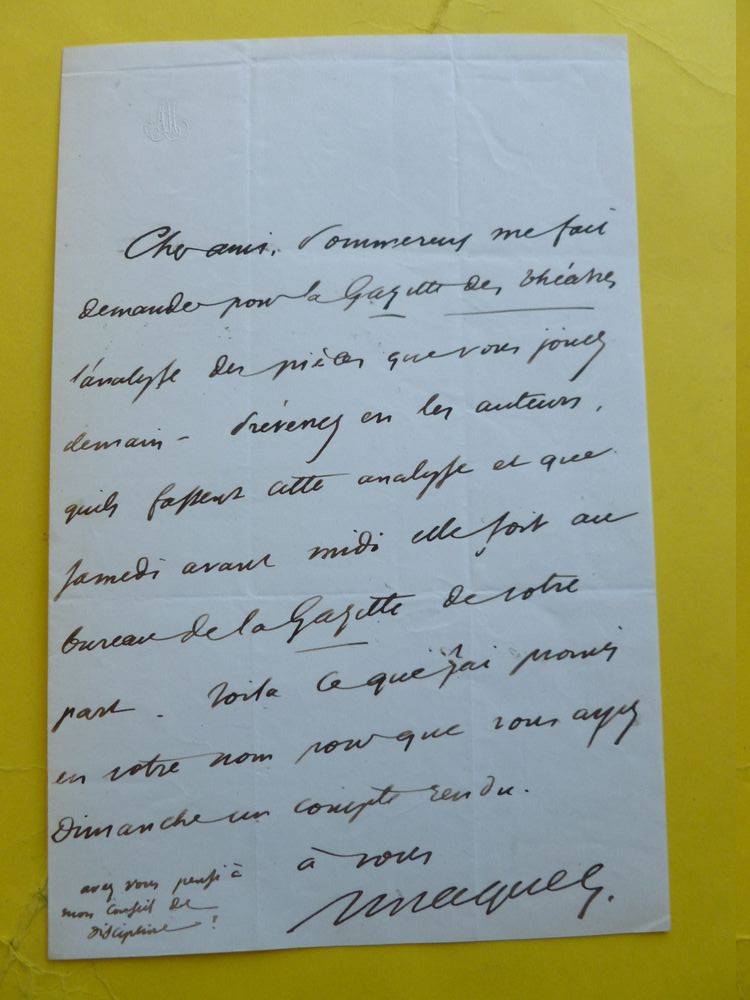 Cher ami, Dommereuy me fait
demander pour la Gazette des théâtres
l'analyse des pièces que vous jouez
demain - Prévenez en les auteurs,
quils fassent cette analyse et que
samedi avant midi elle soit au
bureau de la Gazette de votre
part. Voila ce que j'ai promis
en votre nom pour que vous ayez
Dimanche un compte rendu.
à vous
Maquet.
avez vous pensé à
mon Conseil de
Discipline ?